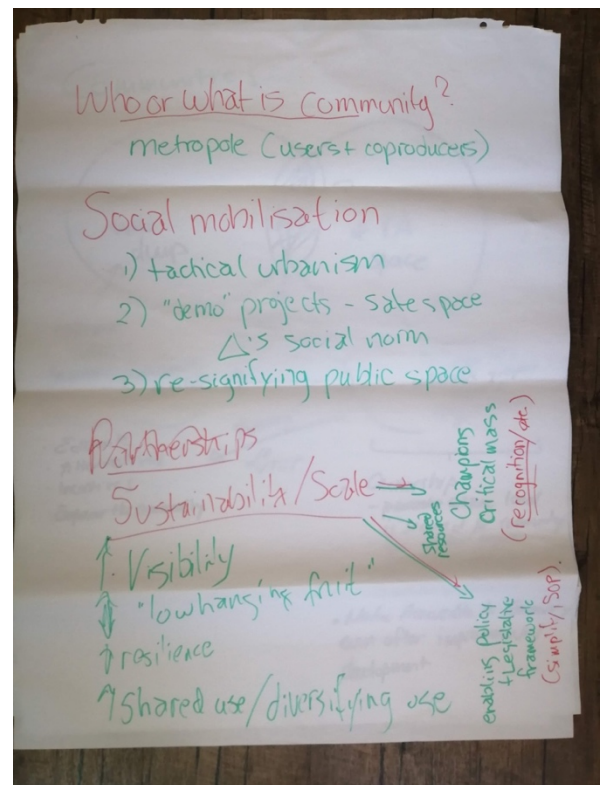 Who or what is community?
metropole (users + coproducers)
Social mobilisation
1) tactical urbanism
2) "demo" projects - safe space
Δ's social norm
3) re-signifying public space
Partnerships
Sustainability/Scale →
↑ Visibility
↕ "low hanging fruit"
↑ resilience
↑ Shared use/diversifying use
shared
resources
Champions
Critical mass
(recognition/etc.)
enabling policy
+ Legislative
framework
(simplify/SOP).